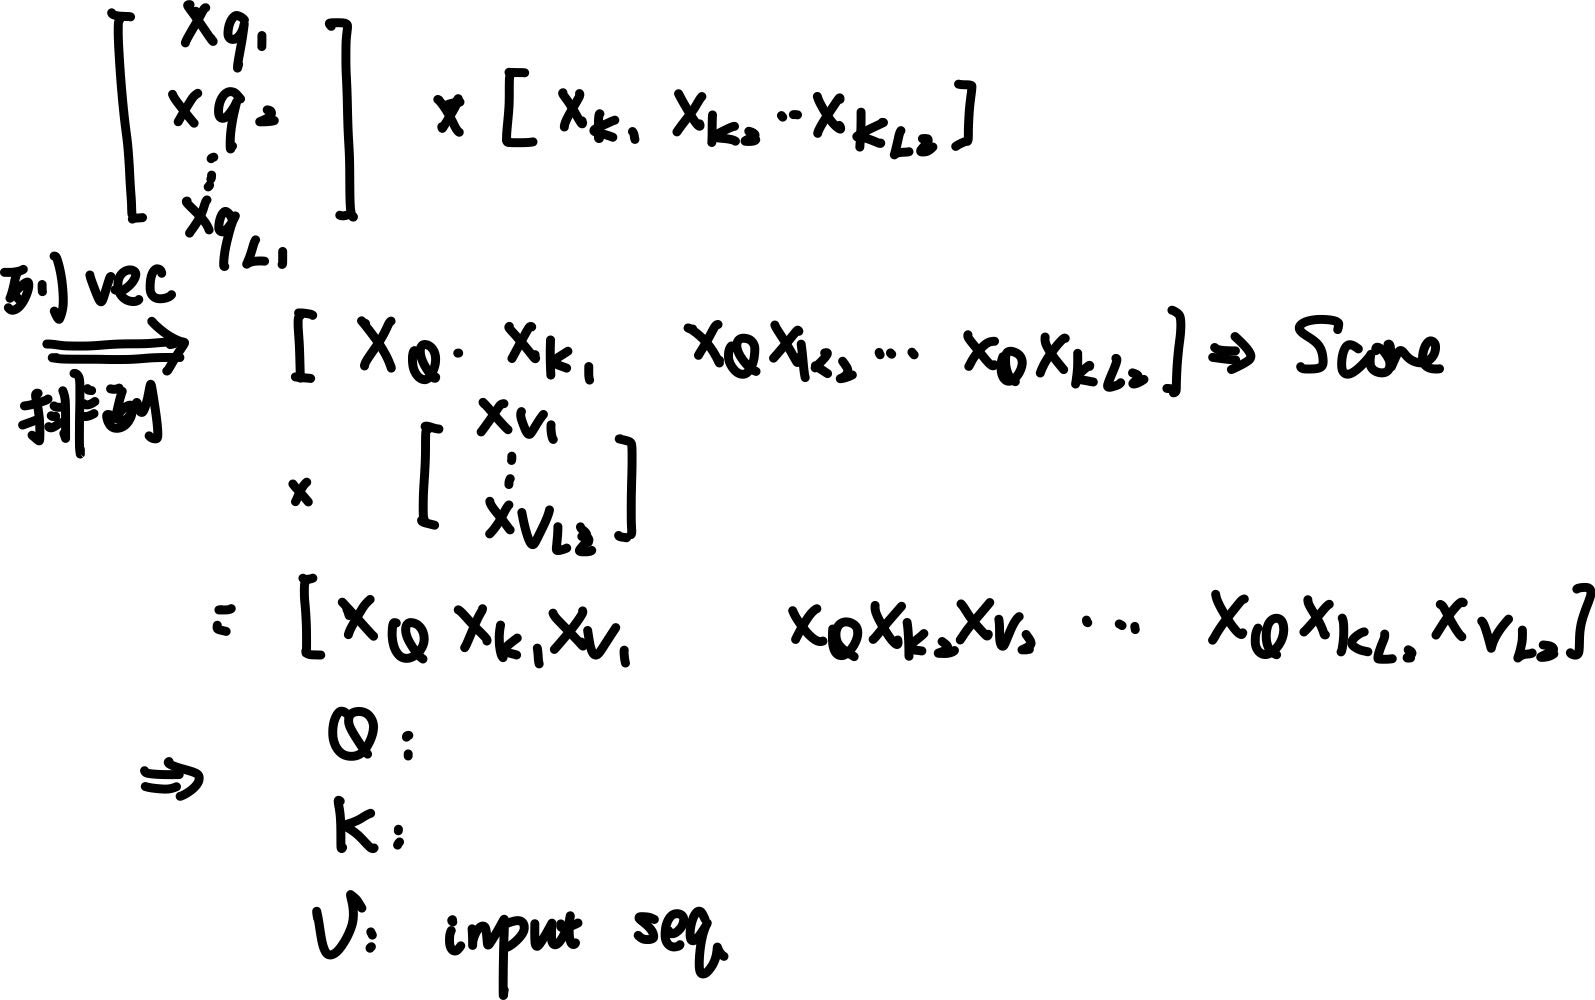 [ xq1 xq2 ⋮ xqL1 ] × [ xk1 xk2 ··· xkL2 ]
列 vec
排列
⇒ [ XQ · xk1 xQxk2 ··· xQxkL2 ] ⇒ Score
× [ xv1 ⋮ xvL2 ]
= [ xQ xk1 xv1 xQxk2xv2 ··· xQxkL2 xvL2 ]
⇒ Q:
K:
V: input seq